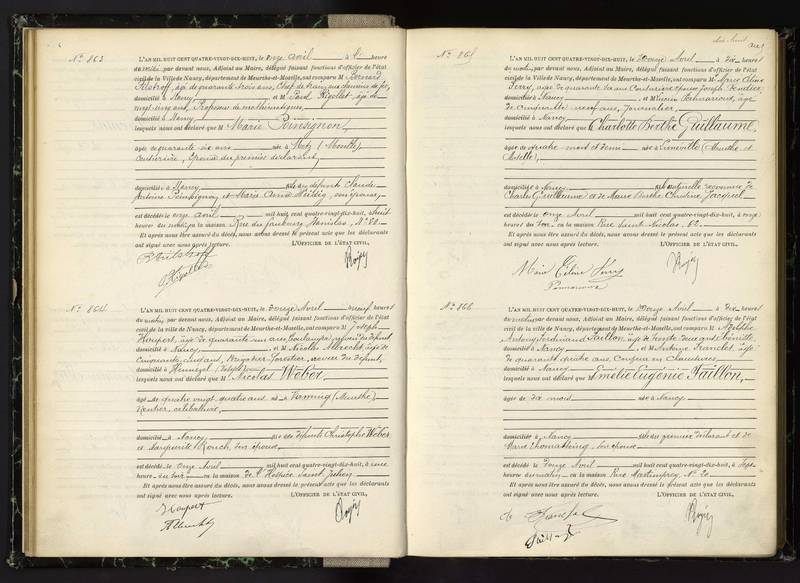 N° 863
L'AN MIL HUIT CENT QUATRE-VINGT-DIX-HUIT, le onze avril à heure
du par devant nous, Adjoint au Maire, délégué faisant fonctions d'officier de l'état
civil de la Ville de Nancy, département de Meurthe-et-Moselle, ont comparu M Bernard
âgé de quarante trois ans, Chef de train aux chemins de fer,
domicilié à Nancy et M Paul Rigollet, âgé de
vingt-cinq ans, Professeur de mathématiques
domicilié à Nancy
lesquels nous ont déclaré que M Marie Poinsignon,
âgée de quarante six ans née à Metz (Moselle)
couturière, épouse du premier déclarant,
domiciliée à Nancy fille des défunts Claude
Antoine Poinsignon et Marie Anne son épouse,
est décédée le onze avril mil huit cent quatre-vingt-dix-huit, à huit
heures du matin en la maison Rue du faubourg Stanislas, N°
Et après nous être assuré du décès, nous avons dressé le présent acte que les déclarants
ont signé avec nous après lecture. L'OFFICIER DE L'ÉTAT CIVIL,
N° 864
L'AN MIL HUIT CENT QUATRE-VINGT-DIX-HUIT, le douze Avril à neuf heures
du matin par devant nous, Adjoint au Maire, délégué faisant fonctions d'officier de l'état
civil de la Ville de Nancy, département de Meurthe-et-Moselle, ont comparu M Joseph
Houpert, âgé de quarante un ans, Boulanger, neveu du défunt
domicilié à Nancy, et M Nicolas Albrecht, âgé de
Cinquante cinq ans, Brigadier forestier, neveu du défunt,
domicilié à Hennezel (Vosges)
lesquels nous ont déclaré que M Nicolas Weber
âgé de quatre vingt quatre ans né à (Meurthe)
Rentier, célibataire,
domicilié à Nancy fils des défunts Christophe Weber
et Marguerite son épouse
est décédé le onze Avril mil huit cent quatre-vingt-dix-huit, à une
heure du soir en la maison de l'Hospice Saint Julien
Et après nous être assuré du décès, nous avons dressé le présent acte que les déclarants
ont signé avec nous après lecture. L'OFFICIER DE L'ÉTAT CIVIL,
Houpert
N° 865
L'AN MIL HUIT CENT QUATRE-VINGT-DIX-HUIT, le douze Avril à dix heures
du matin, par devant nous, Adjoint au Maire, délégué faisant fonctions d'officier de l'état
civil de la Ville de Nancy, département de Meurthe-et-Moselle, ont comparu M Marie Céline
Ferry, âgée de quarante six ans Couturière épouse Joseph
domiciliée à Nancy et M Lucien Ponnavoine, âgé
de cinquante neuf ans, Journalier,
domicilié à Nancy
lesquels nous ont déclaré que Charlotte Berthe Guillaume,
âgée de quatre mois et demi née à Lunéville (Meurthe et
Moselle),
domiciliée à Nancy fille naturelle reconnue de
Charles Guillaume et de Marie Berthe Christine Jacquel
est décédée le onze Avril mil huit cent quatre-vingt-dix-huit, à onze
heures du soir en la maison Rue Saint Nicolas, 62
Et après nous être assuré du décès, nous avons dressé le présent acte que les déclarants
ont signé avec nous après lecture. L'OFFICIER DE L'ÉTAT CIVIL,
Marie Céline Ferry
N° 866
L'AN MIL HUIT CENT QUATRE-VINGT-DIX-HUIT, le douze Avril à dix heures
du matin par devant nous, Adjoint au Maire, délégué faisant fonctions d'officier de l'état
civil de la ville de Nancy, département de Meurthe-et-Moselle, ont comparu M
Antoine Ferdinand Taillon, âgé de trente deux ans, Ébéniste
domicilié à Nancy et M Antoine âgé
de quarante quatre ans, Coupeur en Chaussures
domicilié à Nancy
lesquels nous ont déclaré que Emélie Eugénie Taillon,
âgée de dix mois née à Nancy
domiciliée à Nancy fille du premier déclarant et de
Marie son épouse
est décédée le douze Avril mil huit cent quatre-vingt-dix-huit, à sept
heures du matin, en la maison Rue N° 20
Et après nous être assuré du décès, nous avons dressé le présent acte que les déclarants
ont signé avec nous après lecture. L'OFFICIER DE L'ÉTAT CIVIL,